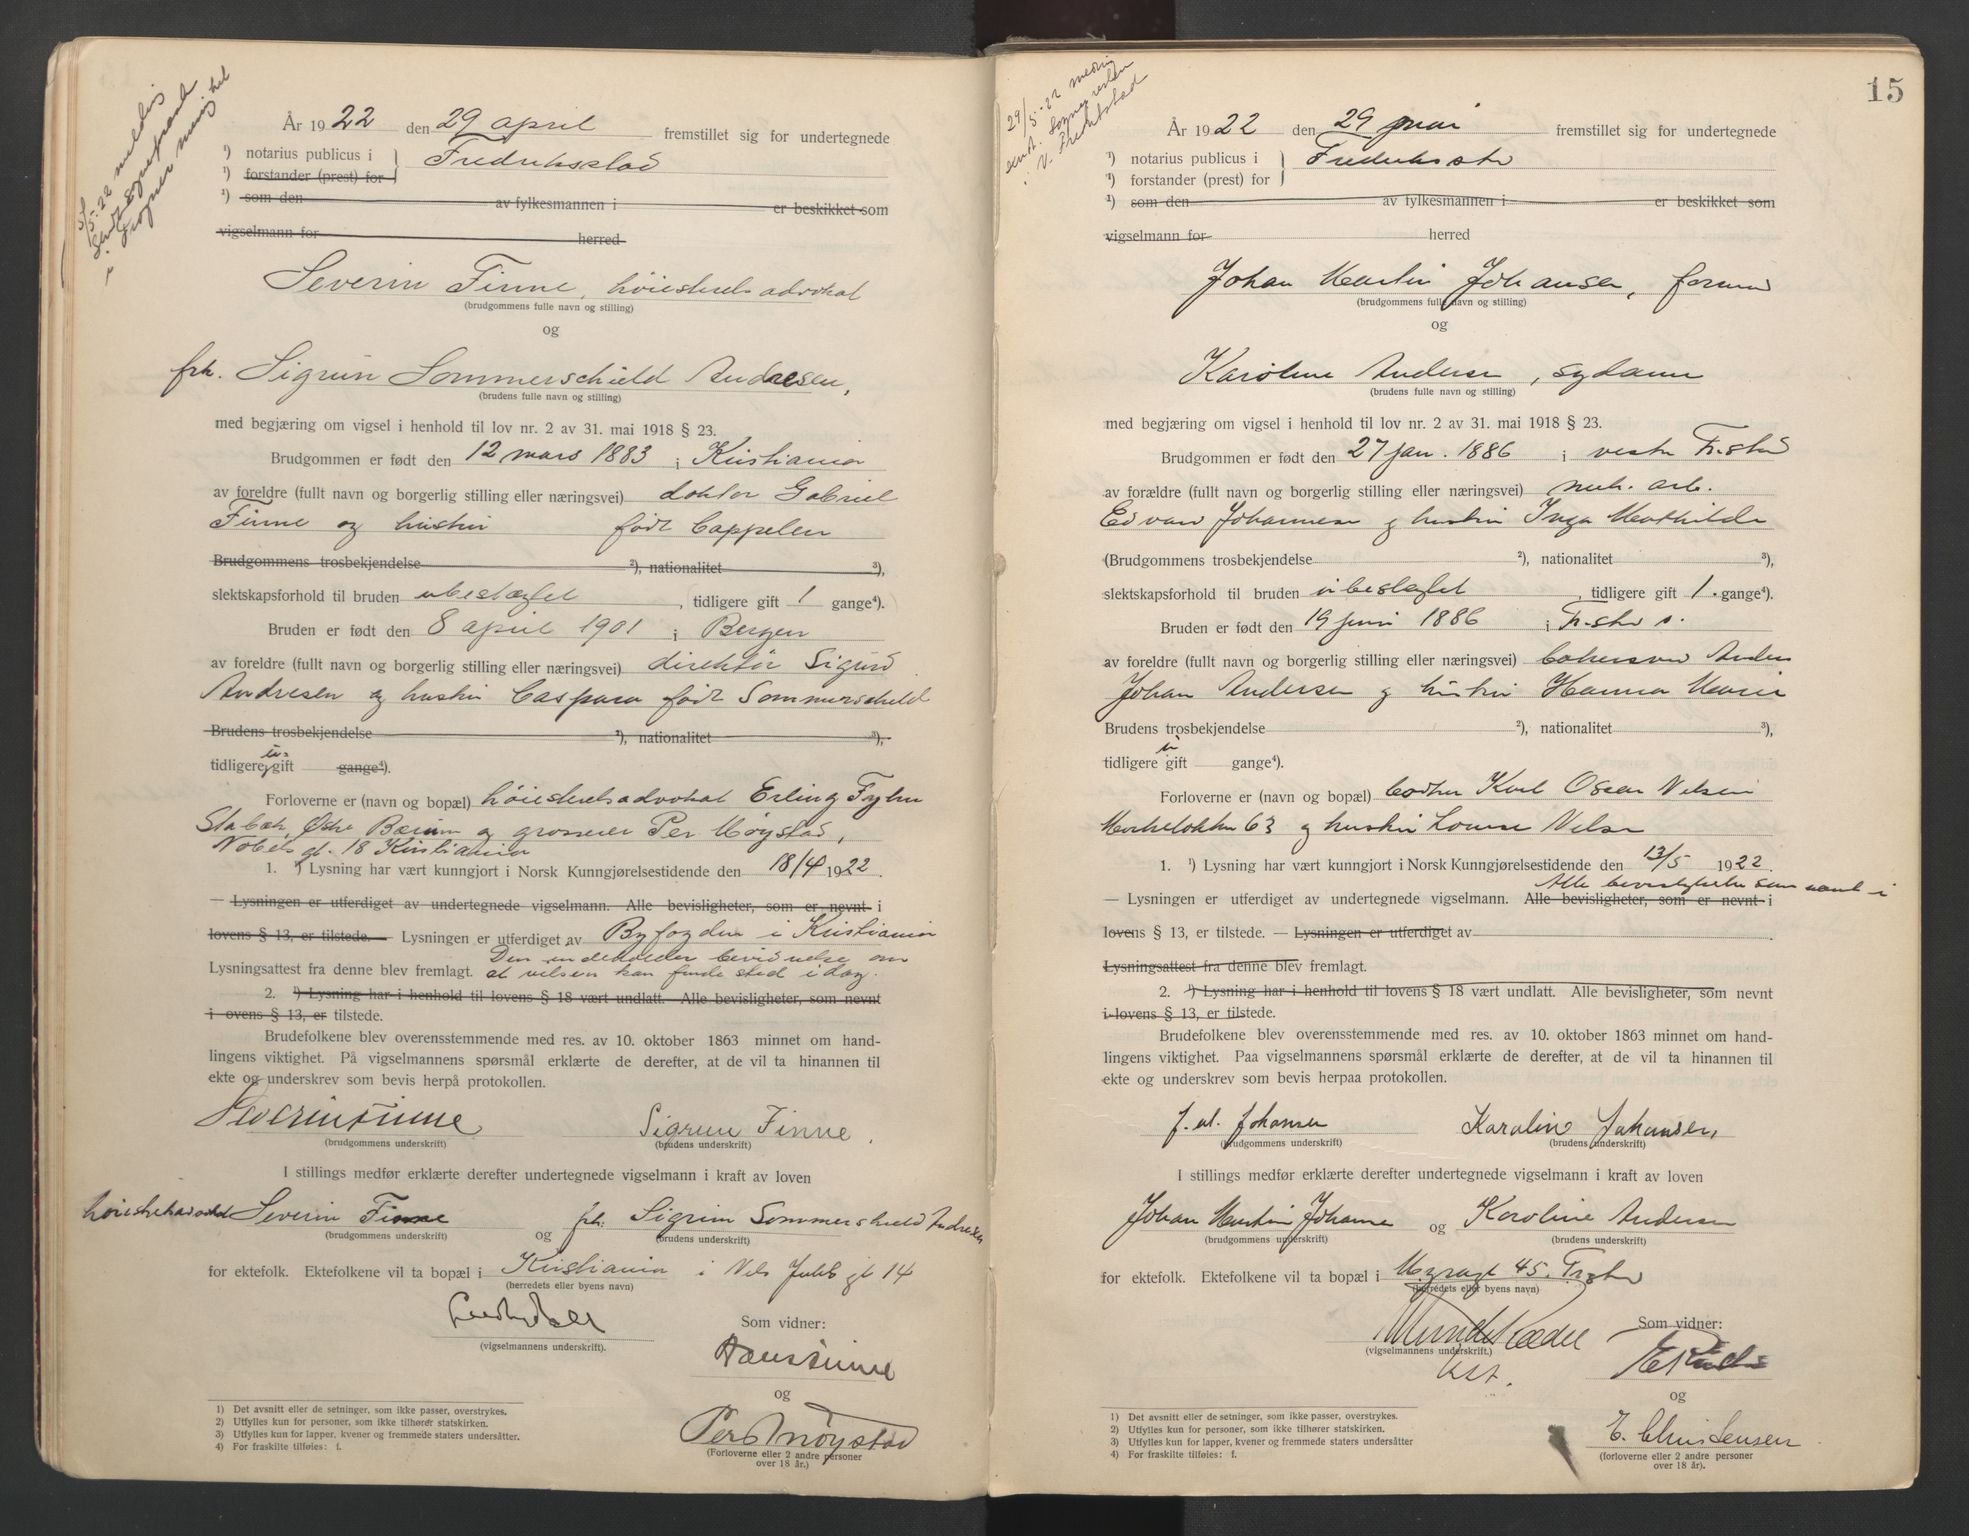 5/5-22 meldt
sendt Sogneprest
i Frogner menighet
År 1922 den 29 april fremstillet sig for undertegnede
¹) notarius publicus i } Fredriksstad
¹) forstander (prest) for
¹) som den av fylkesmannen i er beskikket som
vigselmann for herred
Severin Finne, høiesteretsadvokat
(brudgommens fulle navn og stilling)
og
frk. Sigrun Sommerschield Andresen,
(brudens fulle navn og stilling)
med begjæring om vigsel i henhold til lov nr. 2 av 31. mai 1918 § 23.
Brudgommen er født den 12 mars 1883 i Kristiania
av foreldre (fullt navn og borgerlig stilling eller næringsvei) doktor Gabriel
Finne og hustru født Cappelen
Brudgommens trosbekjendelse ²), nationalitet ³),
slektskapsforhold til bruden ubeslægtet, tidligere gift 1 gange⁴).
Bruden er født den 8 april 1901 i Bergen
av foreldre (fullt navn og borgerlig stilling eller næringsvei) direktør Sigurd
Andresen og hustru Caspara født Sommerschield
Brudens trosbekjendelse ²), nationalitet ³),
tidligere u- gift gange⁴).
Forloverne er (navn og bopæl) høiesteretsadvokat Erling
Stabæk, Østre Bærum og grosserer Per Møystad,
Nobels gt. 18 Kristiania
1. ¹) Lysning har vært kunngjort i Norsk Kunngjørelsestidende den 18/4 1922
— Lysningen er utferdiget av undertegnede vigselmann. Alle bevisligheter, som er nevnt i
lovens § 13, er tilstede. — Lysningen er utferdiget av Byfogden i Kristiania
Lysningsattest fra denne blev fremlagt. Den indeholder bevidnelse om
at vielsen kan finde sted idag.
2. ¹) Lysning har i henhold til lovens § 18 vært undlatt. Alle bevisligheter, som nevnt
i ovens § 13, er tilstede.
Brudefolkene blev overensstemmende med res. av 10. oktober 1863 minnet om hand-
lingens viktighet. På vigselmannens spørsmål erklærte de derefter, at de vil ta hinannen til
ekte og underskrev som bevis herpå protokollen.
Severin Finne Sigrun Finne.
(brudgommens underskrift) (brudens underskrift)
I stillings medfør erklærte derefter undertegnede vigselmann i kraft av loven
Severin Finne og frk. Sigrun Sommerschield Andresen
(brudgommens underskrift) (brudens underskrift)
for ektefolk. Ektefolkene vil ta bopæl i Kristiania i Nils Juels gt 14
(herredets eller byens navn)
(vigselmannens underskrift).
Som vidner:
Hans Finne
og
Per Møystad
(Forloverne eller 2 andre personer
over 18 år.)
1) Det avsnitt eller de setninger, som ikke passer, overstrykes.
2) Utfylles kun for personer, som ikke tilhører statskirken.
3) Utfylles kun for lapper, kvener og fremmede staters undersåtter.
4) For fraskilte tilføies: f.
15
29/5-22 melding
sendt. Sognepresten
i V. Fredrikstad
År 1922 den 29 mai fremstillet sig for undertegnede
¹) notarius publicus i } Frederiksstad
¹) forstander (prest) for
¹) som den av fylkesmannen i er beskikket som
vigselmann for herred
Johan Martin Johansen, formand
(brudgommens fulle navn og stilling)
og
Karoline Andersen, sydame
(brudens fulle navn og stilling)
med begjæring om vigsel i henhold til lov nr. 2 av 31. mai 1918 § 23.
Brudgommen er født den 27 jan. 1886 i vestre Fr.stad
av forældre (fullt navn og borgerlig stilling eller næringsvei) mek. arb.
Edvard Johannesen og hustru Inga Mathilde
(Brudgommens trosbekjendelse ²), nationalitet ³),
slektskapsforhold til bruden ubeslægtet, tidligere gift 1 gange⁴).
Bruden er født den 19 juni 1886 i Fr.stad
av foreldre (fullt navn og borgerlig stilling eller næringsvei) Anders
Johan Andersen og hustru Hanna Marie
Brudens trosbekjendelse ²), nationalitet ³),
tidligere u gift gange⁴).
Forloverne er (navn og bopæl) Karl Oscar Nilsen
63 og hustru Lovise Nilsen
1. ¹) Lysning har vært kunngjort i Norsk Kunngjørelsestidende den 13/5 1922.
— Lysningen er utferdiget av undertegnede vigselmann. Alle bevisligheter, som er nevnt i Alle bevisligheter som nævnt i
lovens § 13, er tilstede. — Lysningen er utferdiget av
Lysningsattest fra denne blev fremlagt.
2. ¹) Lysning har i henhold til lovens § 18 vært undlatt. Alle bevisligheter, som nevnt
i lovens § 13, er tilstede.
Brudefolkene blev overensstemmende med res. av 10. oktober 1863 minnet om hand-
lingens viktighet. Paa vigselmannens spørsmål erklærte de derefter, at de vil ta hinannen til
ekte og underskrev som bevis herpaa protokollen.
J. M. Johansen Karoline Johansen,
(brudgommens underskrift) (brudens underskrift)
I stillings medfør erklærte derefter undertegnede vigselmann i kraft av loven
Johan Martin Johansen og Karoline Andersen
(brudgommens underskrift) (brudens underskrift)
for ektefolk. Ektefolkene vil ta bopæl i 45.
(herredets eller byens navn)
(vigselmannens underskrift.)
Som vidner:
og
E. Christensen
(forloverne eller 2 andre personer
over 18 år).
1) Det avsnitt eller de setninger, som ikke passer, overstrykes.
2) Utfylles kun for personer, som ikke tilhører statskirken.
3) Utfylles kun for lapper, kvener og fremmede staters undersåtter
4) For fraskilte tilføies: f.